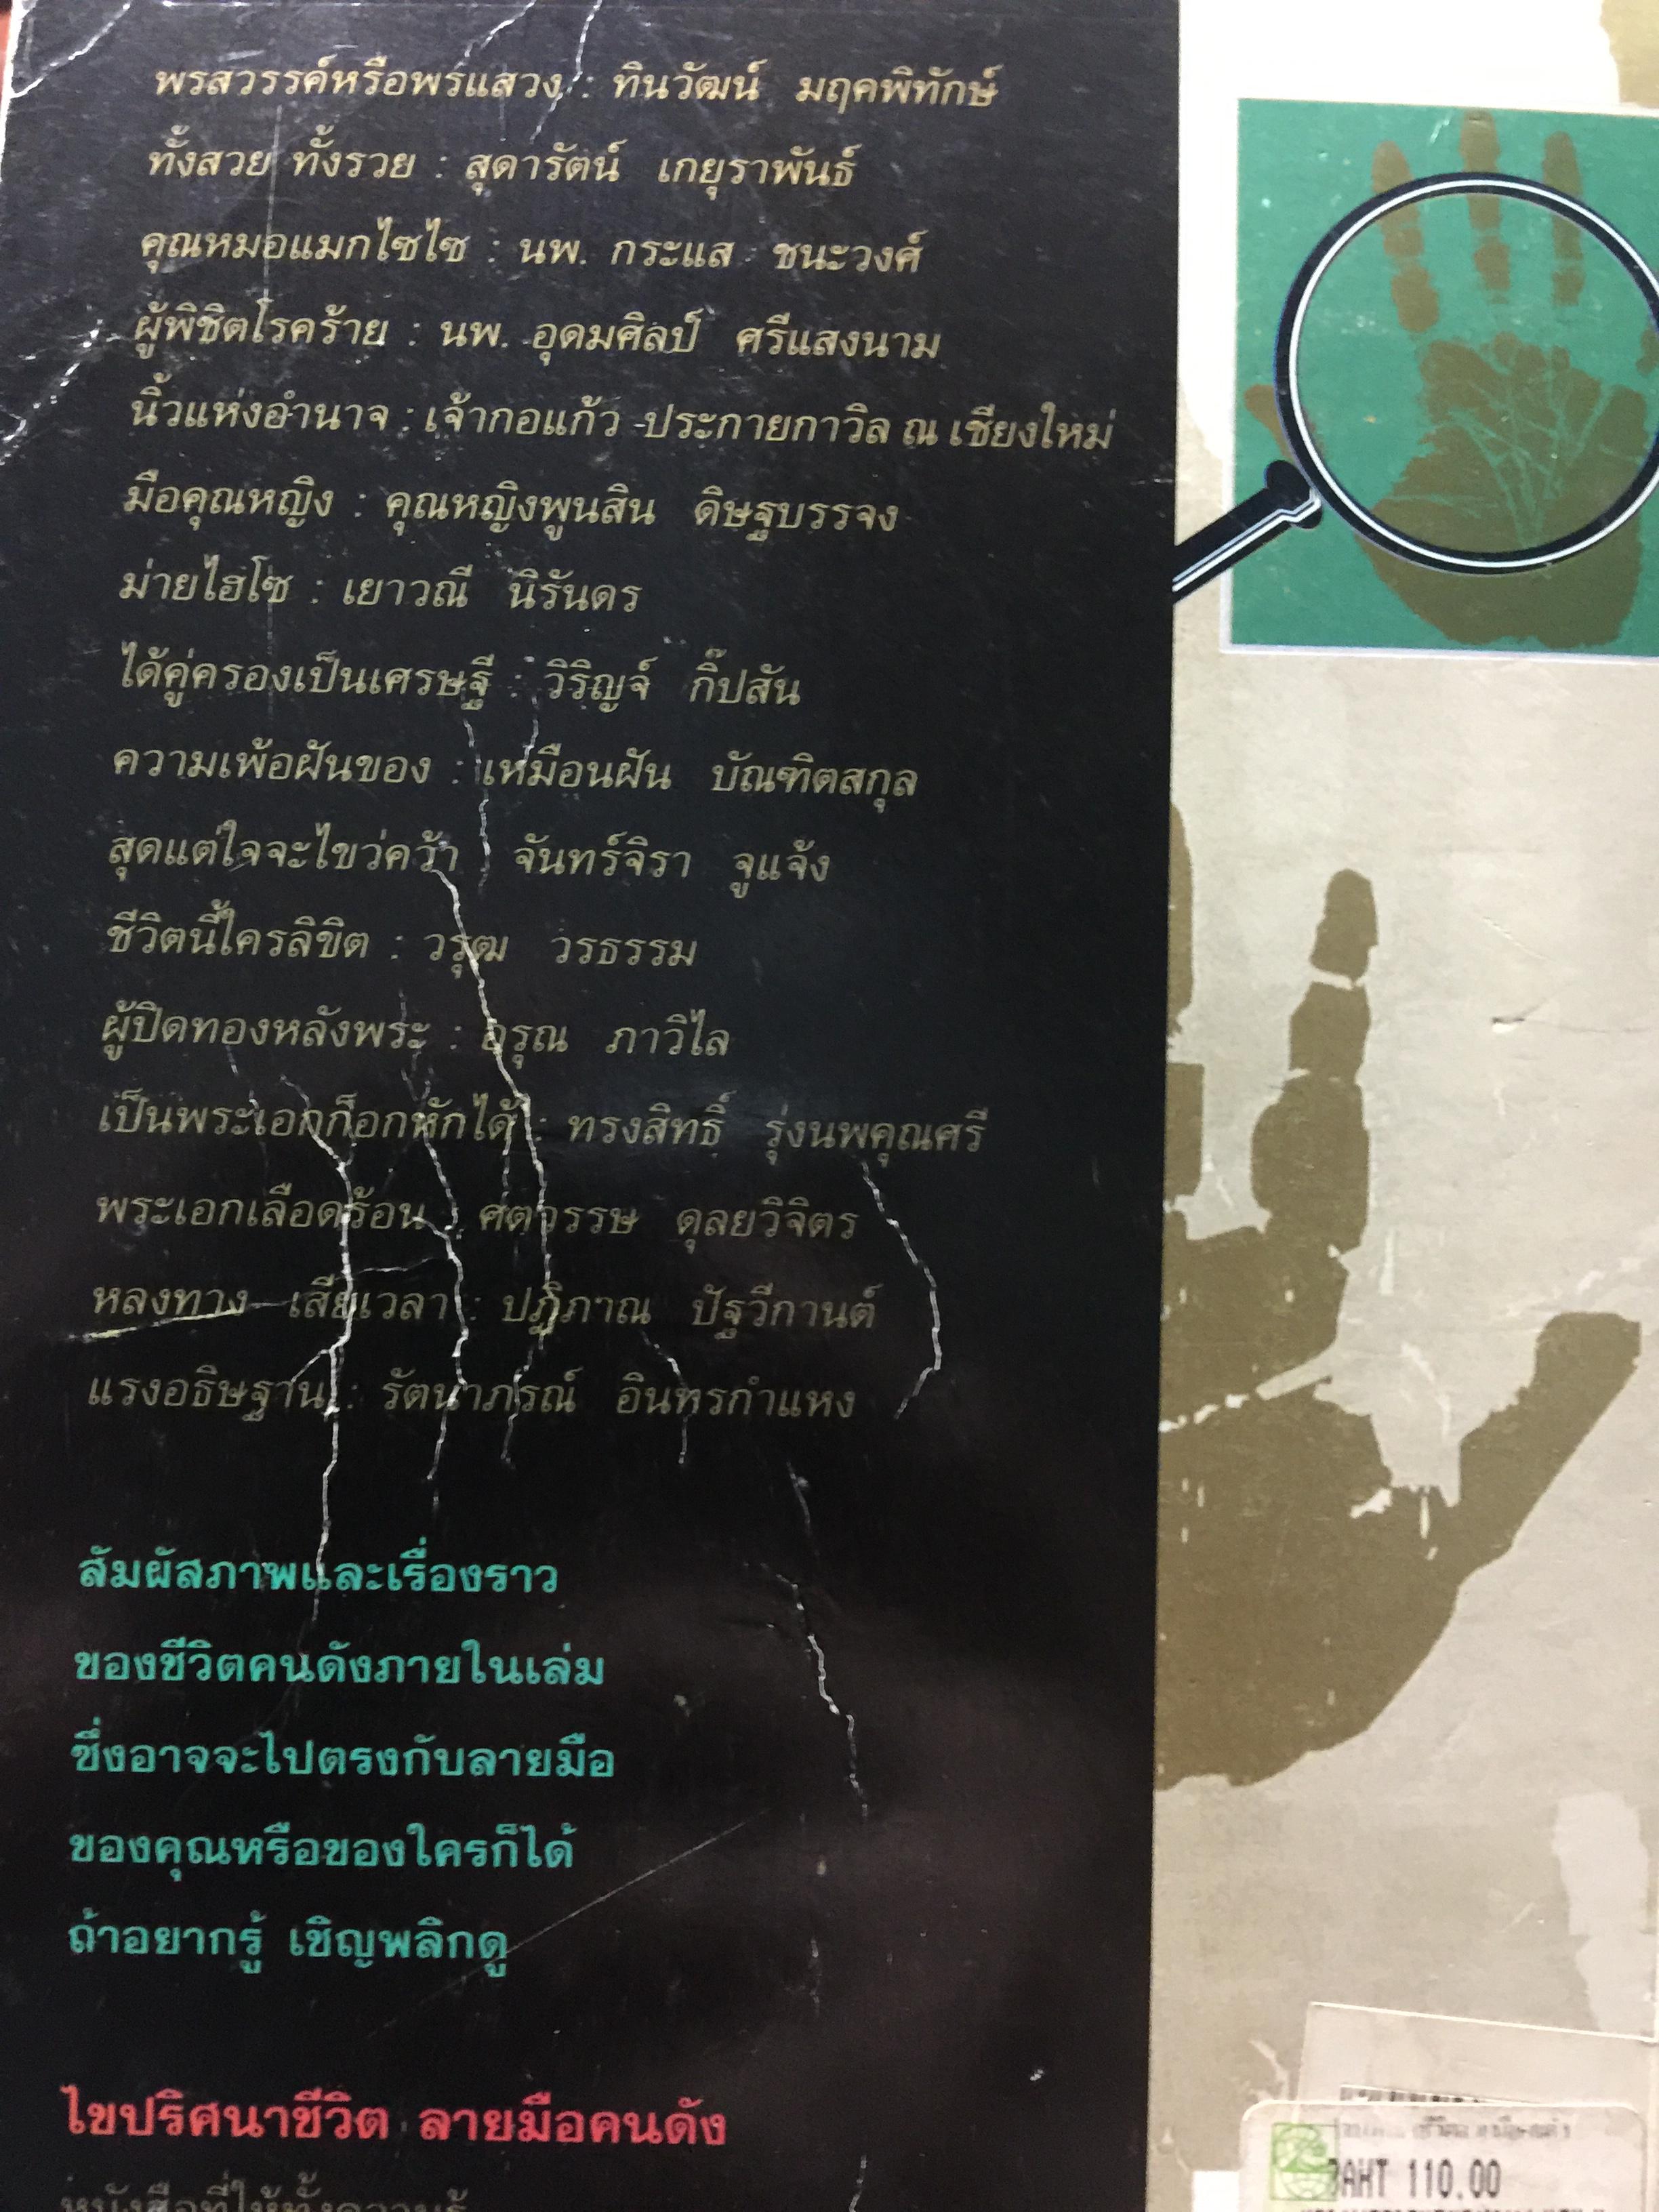 พรสวรรค์หรือพรแสวง : ทินวัฒน์ มฤคพิทักษ์
ทั้งสวย ทั้งรวย : สุดารัตน์ เกยุราพันธ์
คุณหมอแมกไซไซ : นพ. กระแส ชนะวงศ์
ผู้พิชิตโรคร้าย : นพ. อุดมศิลป์ ศรีแสงนาม
นิ้วแห่งอำนาจ : เจ้ากอแก้ว -ประกายกาวิล ณ เชียงใหม่
มือคุณหญิง : คุณหญิงพูนสิน ดิษฐบรรจง
ม่ายไฮโซ : เยาวณี นิรันดร
ได้คู่ครองเป็นเศรษฐี : วิริญจ์ กิ๊ปสัน
ความเพ้อฝันของ : เหมือนฝัน บัณฑิตสกุล
สุดแต่ใจจะไขว่คว้า : จันทร์จิรา จูแจ้ง
ชีวิตนี้ใครลิขิต : วรุฒ วรธรรม
ผู้ปิดทองหลังพระ : อรุณ ภาวิไล
เป็นพระเอกก็อกหักได้ : ทรงสิทธิ์ รุ่งนพคุณศรี
พระเอกเลือดร้อน : ศตวรรษ ดุลยวิจิตร
หลงทาง เสียเวลา : ปฏิภาณ ปัฐวีกานต์
แรงอธิษฐาน : รัตนาภรณ์ อินทรกำแหง
สัมผัสภาพและเรื่องราว
ของชีวิตคนดังภายในเล่ม
ซึ่งอาจจะไปตรงกับลายมือ
ของคุณหรือของใครก็ได้
ถ้าอยากรู้ เชิญพลิกดู
ไขปริศนาชีวิต ลายมือคนดัง
หนังสือที่ให้ทั้งความรู้
BAHT 110.00